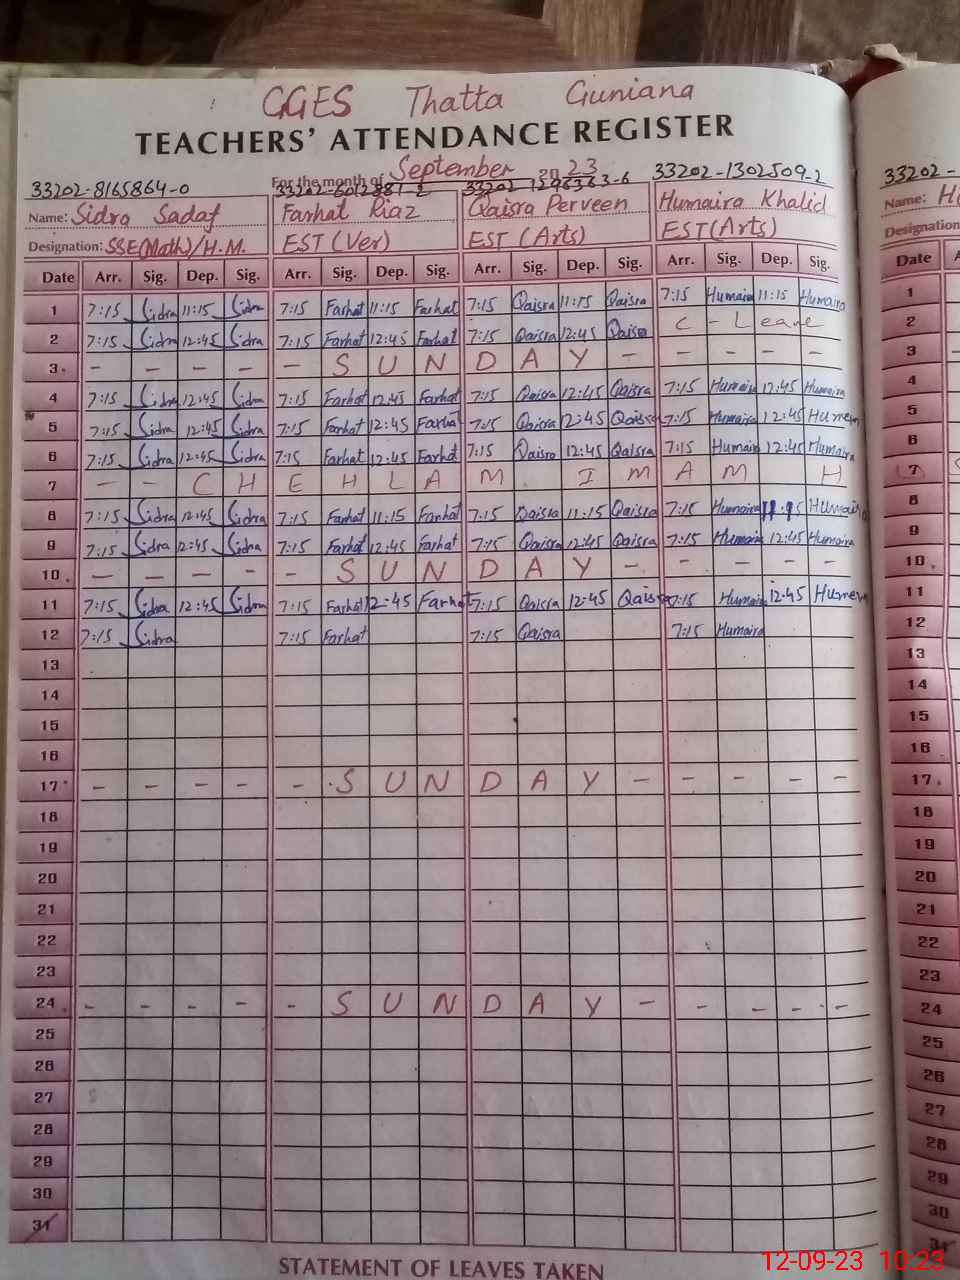 GGES Thatta Guniana
TEACHERS' ATTENDANCE REGISTER
For the month of September 2023
33202-8165864-0 33202-6012881-2 33202-1296363-6 33202-1302509-2 33202-
Name: Sidra Sadaf Farhat Riaz Qaisra Perveen Humaira Khalid Name:
Designation: SSE(Math)/H.M. EST (Ver) EST (Arts) EST(Arts) Designation
Date Arr. Sig. Dep. Sig. Arr. Sig. Dep. Sig. Arr. Sig. Dep. Sig. Arr. Sig. Dep. Sig. Date
1 7:15 Sidra 11:15 Sidra 7:15 Farhat 11:15 Farhat 7:15 Qaisra 11:15 Qaisra 7:15 Humaira 11:15 Humaira 1
2 7:15 Sidra 12:45 Sidra 7:15 Farhat 12:45 Farhat 7:15 Qaisra 12:45 Qaisra C - Leave 2
3 - - - - - S U N D A Y - - - - - 3
4 7:15 Sidra 12:45 Sidra 7:15 Farhat 12:45 Farhat 7:15 Qaisra 12:45 Qaisra 7:15 Humaira 12:45 Humaira 4
5 7:15 Sidra 12:45 Sidra 7:15 Farhat 12:45 Farhat 7:15 Qaisra 12:45 Qaisra 7:15 Humaira 12:45 Humera 5
6 7:15 Sidra 12:45 Sidra 7:15 Farhat 12:45 Farhat 7:15 Qaisra 12:45 Qaisra 7:15 Humaira 12:45 Humaira 6
7 - - C H E H L A M I M A M H 7
8 7:15 Sidra 12:45 Sidra 7:15 Farhat 11:15 Farhat 7:15 Qaisra 11:15 Qaisra 7:15 Humaira 11:15 Humaira 8
9 7:15 Sidra 12:45 Sidra 7:15 Farhat 12:45 Farhat 7:15 Qaisra 12:45 Qaisra 7:15 Humaira 12:45 Humaira 9
10 - - - - - S U N D A Y - - - - - 10
11 7:15 Sidra 12:45 Sidra 7:15 Farhat 12:45 Farhat 7:15 Qaisra 12:45 Qaisra 7:15 Humaira 12:45 Humera 11
12 7:15 Sidra 7:15 Farhat 7:15 Qaisra 7:15 Humaira 12
13 13
14 14
15 15
16 16
17 - - - - - S U N D A Y - - - - - 17
18 18
19 19
20 20
21 21
22 22
23 23
24 - - - - - S U N D A Y - - - - - 24
25 25
26 26
27 27
28 28
29 29
30 30
31 31
STATEMENT OF LEAVES TAKEN
12-09-23 10:23